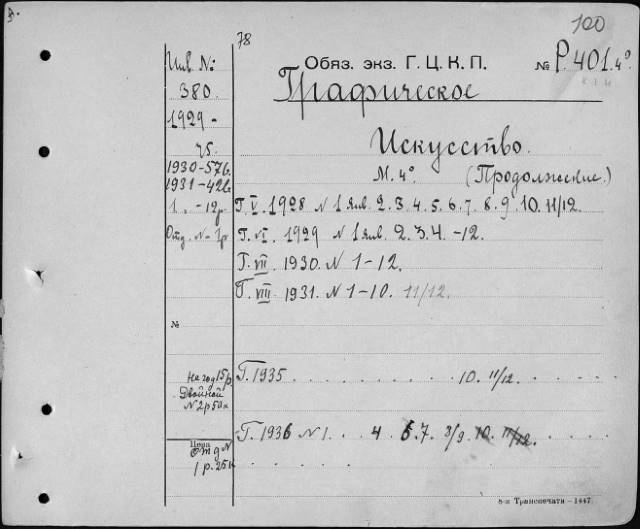 100
78
Обяз. экз. Г. Ц. К. П. № Р.401.4º
Инв. №:
380.
1929 -
75.
1930-576.
1931-426
1. - 12р.
Отд. N - 1р
Графическое
Искусство.
М. 4º (Продолжение.)
Г. V. 1928 N 1 янв. 2. 3. 4. 5. 6. 7. 8. 9. 10. 11/12.
Г. VI. 1929 N 1 янв. 2. 3. 4. -12.
Г. VII 1930. N 1-12.
Г. VIII 1931. N 1-10. 11/12.
№
На год 15р.
Двойной
N 2р50к
Г. 1935 . . . . . . . . . . 10. 11/12.
Г. 1936 N 1. . . 4 6. 7. 8/9. 10. 11/12.
Цена
Отд N
1 р. 25к
8-я Транспечати - 1447.